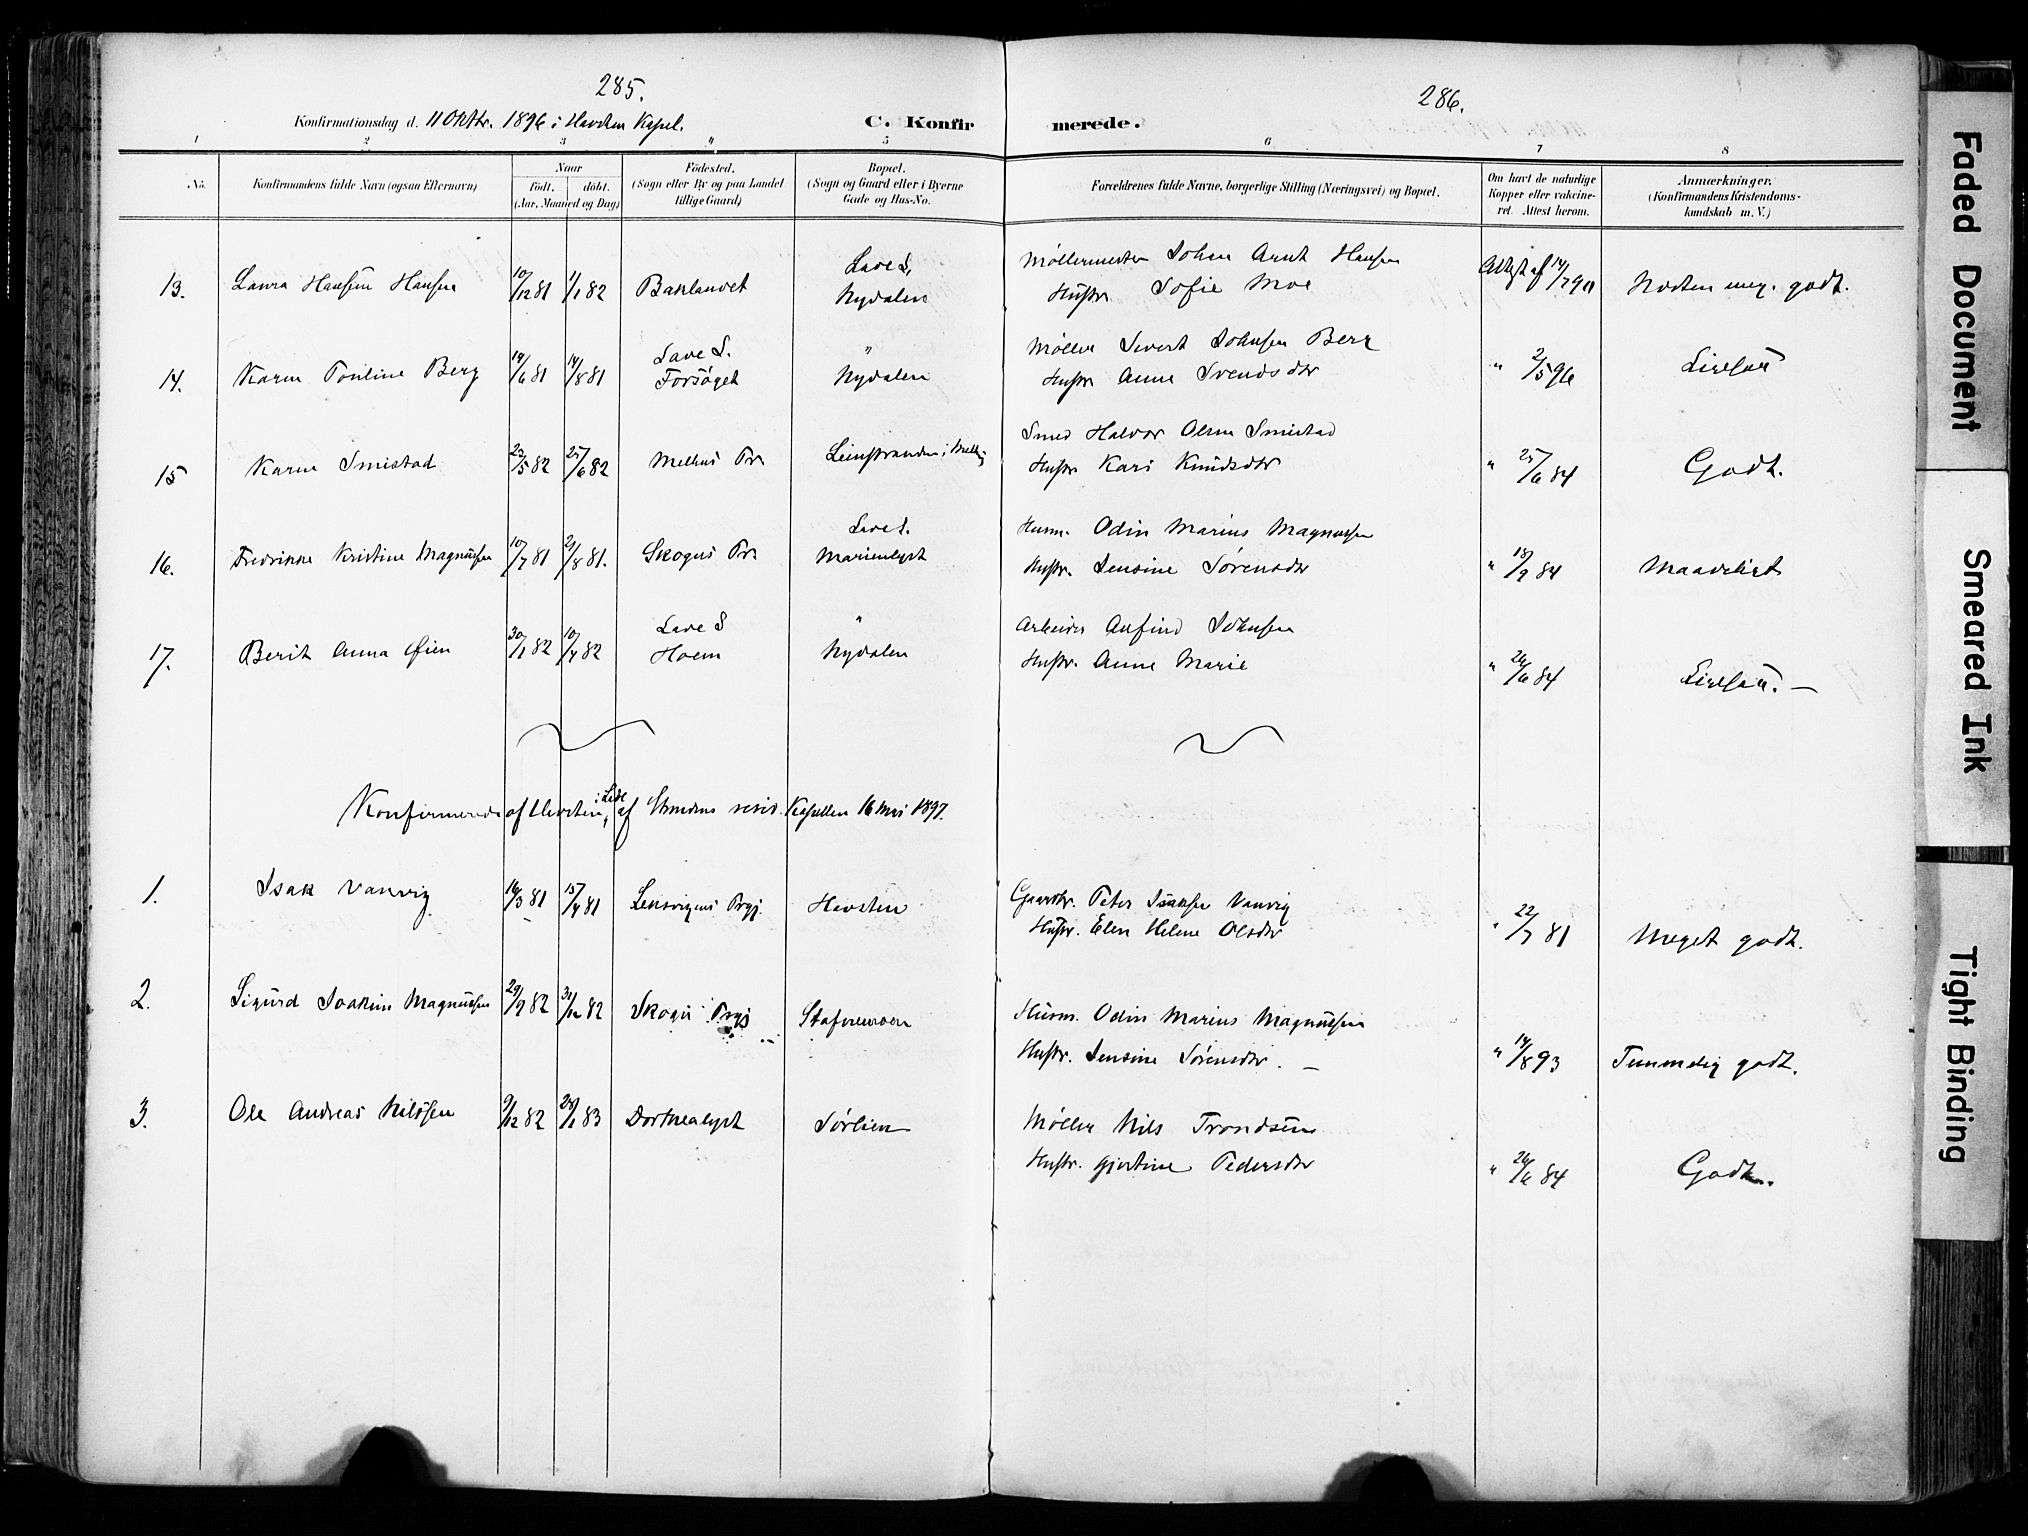 285.
286.
Konfirmationsdag d. 11 Oktbr. 1896 i Havsten Kapel.
C. Konfirmerede.
1 2 3 4 5 6 7 8
No.
Konfirmandens fulde Navn (ogsaa Efternavn)
Naar
født. døbt.
(Aar, Maaned og Dag)
Fødested.
(Sogn eller By og paa Landet
tillige Gaard)
Bopæl.
(Sogn og Gaard eller i Byerne
Gade og Hus-No.
Forældrenes fulde Navne, borgerlige Stilling (Næringsvei) og Bopæl.
Om havt de naturlige
Kopper eller vakcine-
ret. Attest herom.
Anmærkninger.
(Konfirmandens Kristendoms-
kundskab m. V.)
13. Laura Hansen Hansen 10/12 81 1/1 82 Baklandet Lade S. Nydalen
Møllermester Johan Arnt Hansen
Hustr. Sofie Moe
Attest af 14/7 90 Næsten meg. godt.
14. Karen Pauline Berg 19/6 81 14/8 81 Lade S. Forsøget " Nydalen
Møller Sivert Johnsen Berg
Hustr. Anne Svendsdtr
" 2/5 96
15 Karen Smistad 23/5 82 25/6 82 Melhus Pr. Leinstranden i Melhus
Smed Halvor Olsen Smistad
Hustr. Kari Knudsdtr
" 25/6 84 Godt.
16. Fredrikke Kristine Magnussen 10/7 81 21/8 81. Skogns Pr. Lade S. Marienlyst
Husm. Odin Marius Magnussen
Hustr. Jensine Sørensdtr
" 18/9 84 Maadeligt
17. Berit Anna Øien 30/1 82 10/4 82 Lade S Hoem " Nydalen
Arbeider Anfind Johnsen
Hustr. Anne Marie
" 26/6 84
Konfirmerede af Havsten i Lade af Strindens resid. Kapellan 16 Mai 1897.
1. Isak Vanvig 16/3 81 15/4 81 Lensvigens Prgj. Havsten
Gaardbr. Peter Isaksen Vanvig
Hustr. Elen Helene Olsdtr
" 22/7 81 Meget godt.
2. Sigurd Joakim Magnussen 29/9 82 31/12 82 Skogn Prgj Stafnemoen
Husm. Odin Marius Magnussen
Hustr. Jensine Sørensdtr. —
" 14/8 93 Temmelig godt.
3. Ole Andreas Nilssen 9/12 82 28/1 83 Dorthealyst Sørlien
Møller Nils Trondsen
Hustr. Gjertine Pedersdtr
" 26/6 84 Godt.
Faded Document
Smeared Ink
Tight Binding